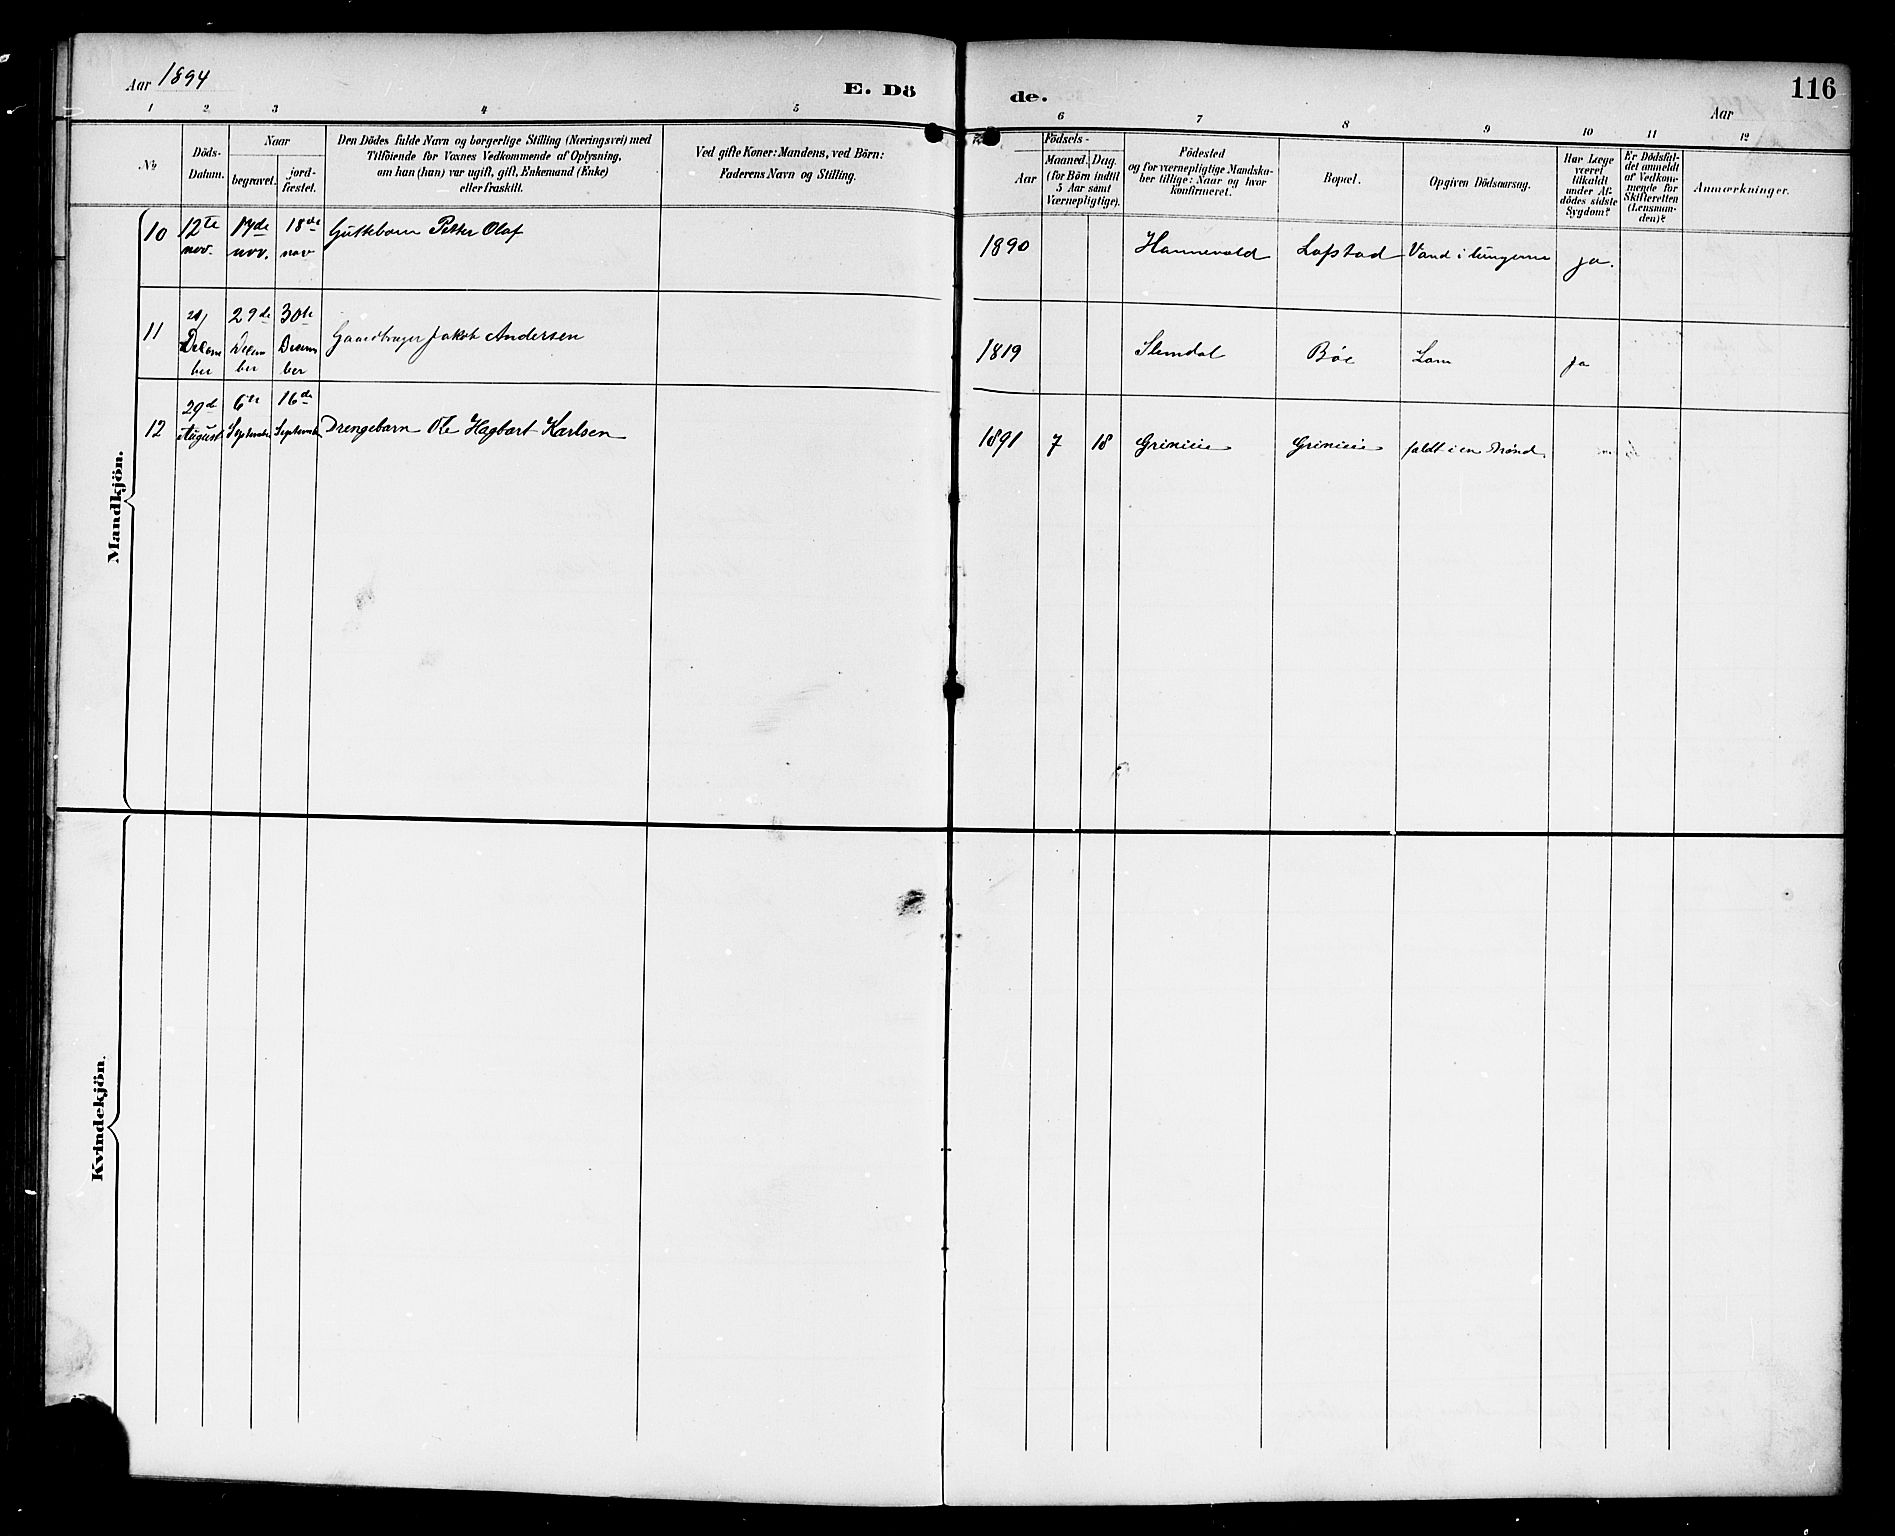 Aar 1894
E. Dö
de.
116
Aar
1 2 3 4 5 6 7 8 9 10 11 12
No
Döds-
Datum.
Naar
begravet.
jord-
fæstet.
Den Dödes fulde Navn og borgerlige Stilling (Næringsvei) med
Tilföiende for Voxnes Vedkommende af Oplysning,
om han (hun) var ugift, gift, Enkemand (Enke)
eller fraskilt.
Ved gifte Koner: Mandens, ved Börn:
Faderens Navn og Stilling.
Födsels-
Aar
Maaned. Dag.
(for Börn indtil
5 Aar samt
Værnepligtige).
Födested
og for værnepligtige Mandska-
ber tillige: Naar og hvor
konfirmeret.
Bopæl.
Opgiven Dödsaarsag.
Har Læge
været
tilkaldt
under Af-
dödes sidste
Sygdom?
Er Dödsfal-
det anmeldt
af Vedkom-
mende for
Skifteretten
(Lensman-
den)?
Anmærkninger.
Mandkjön.
10 12te nov. 17de nov. 18de nov Guttebarn Petter Olaf 1890 Hannevold Lofstad Vand i lungerne ja.
11 Decem ber 29de Decem ber 30te Decem ber Gaardbruger Jakob Andersen 1819 Stemdal Böe Lam ja
12 29d August 6te September 16de September Drengebarn Ole Hagbart Karlsen 1891 7 18 Grimieie Grimieie faldt i en Brönd
Kvindekjön.